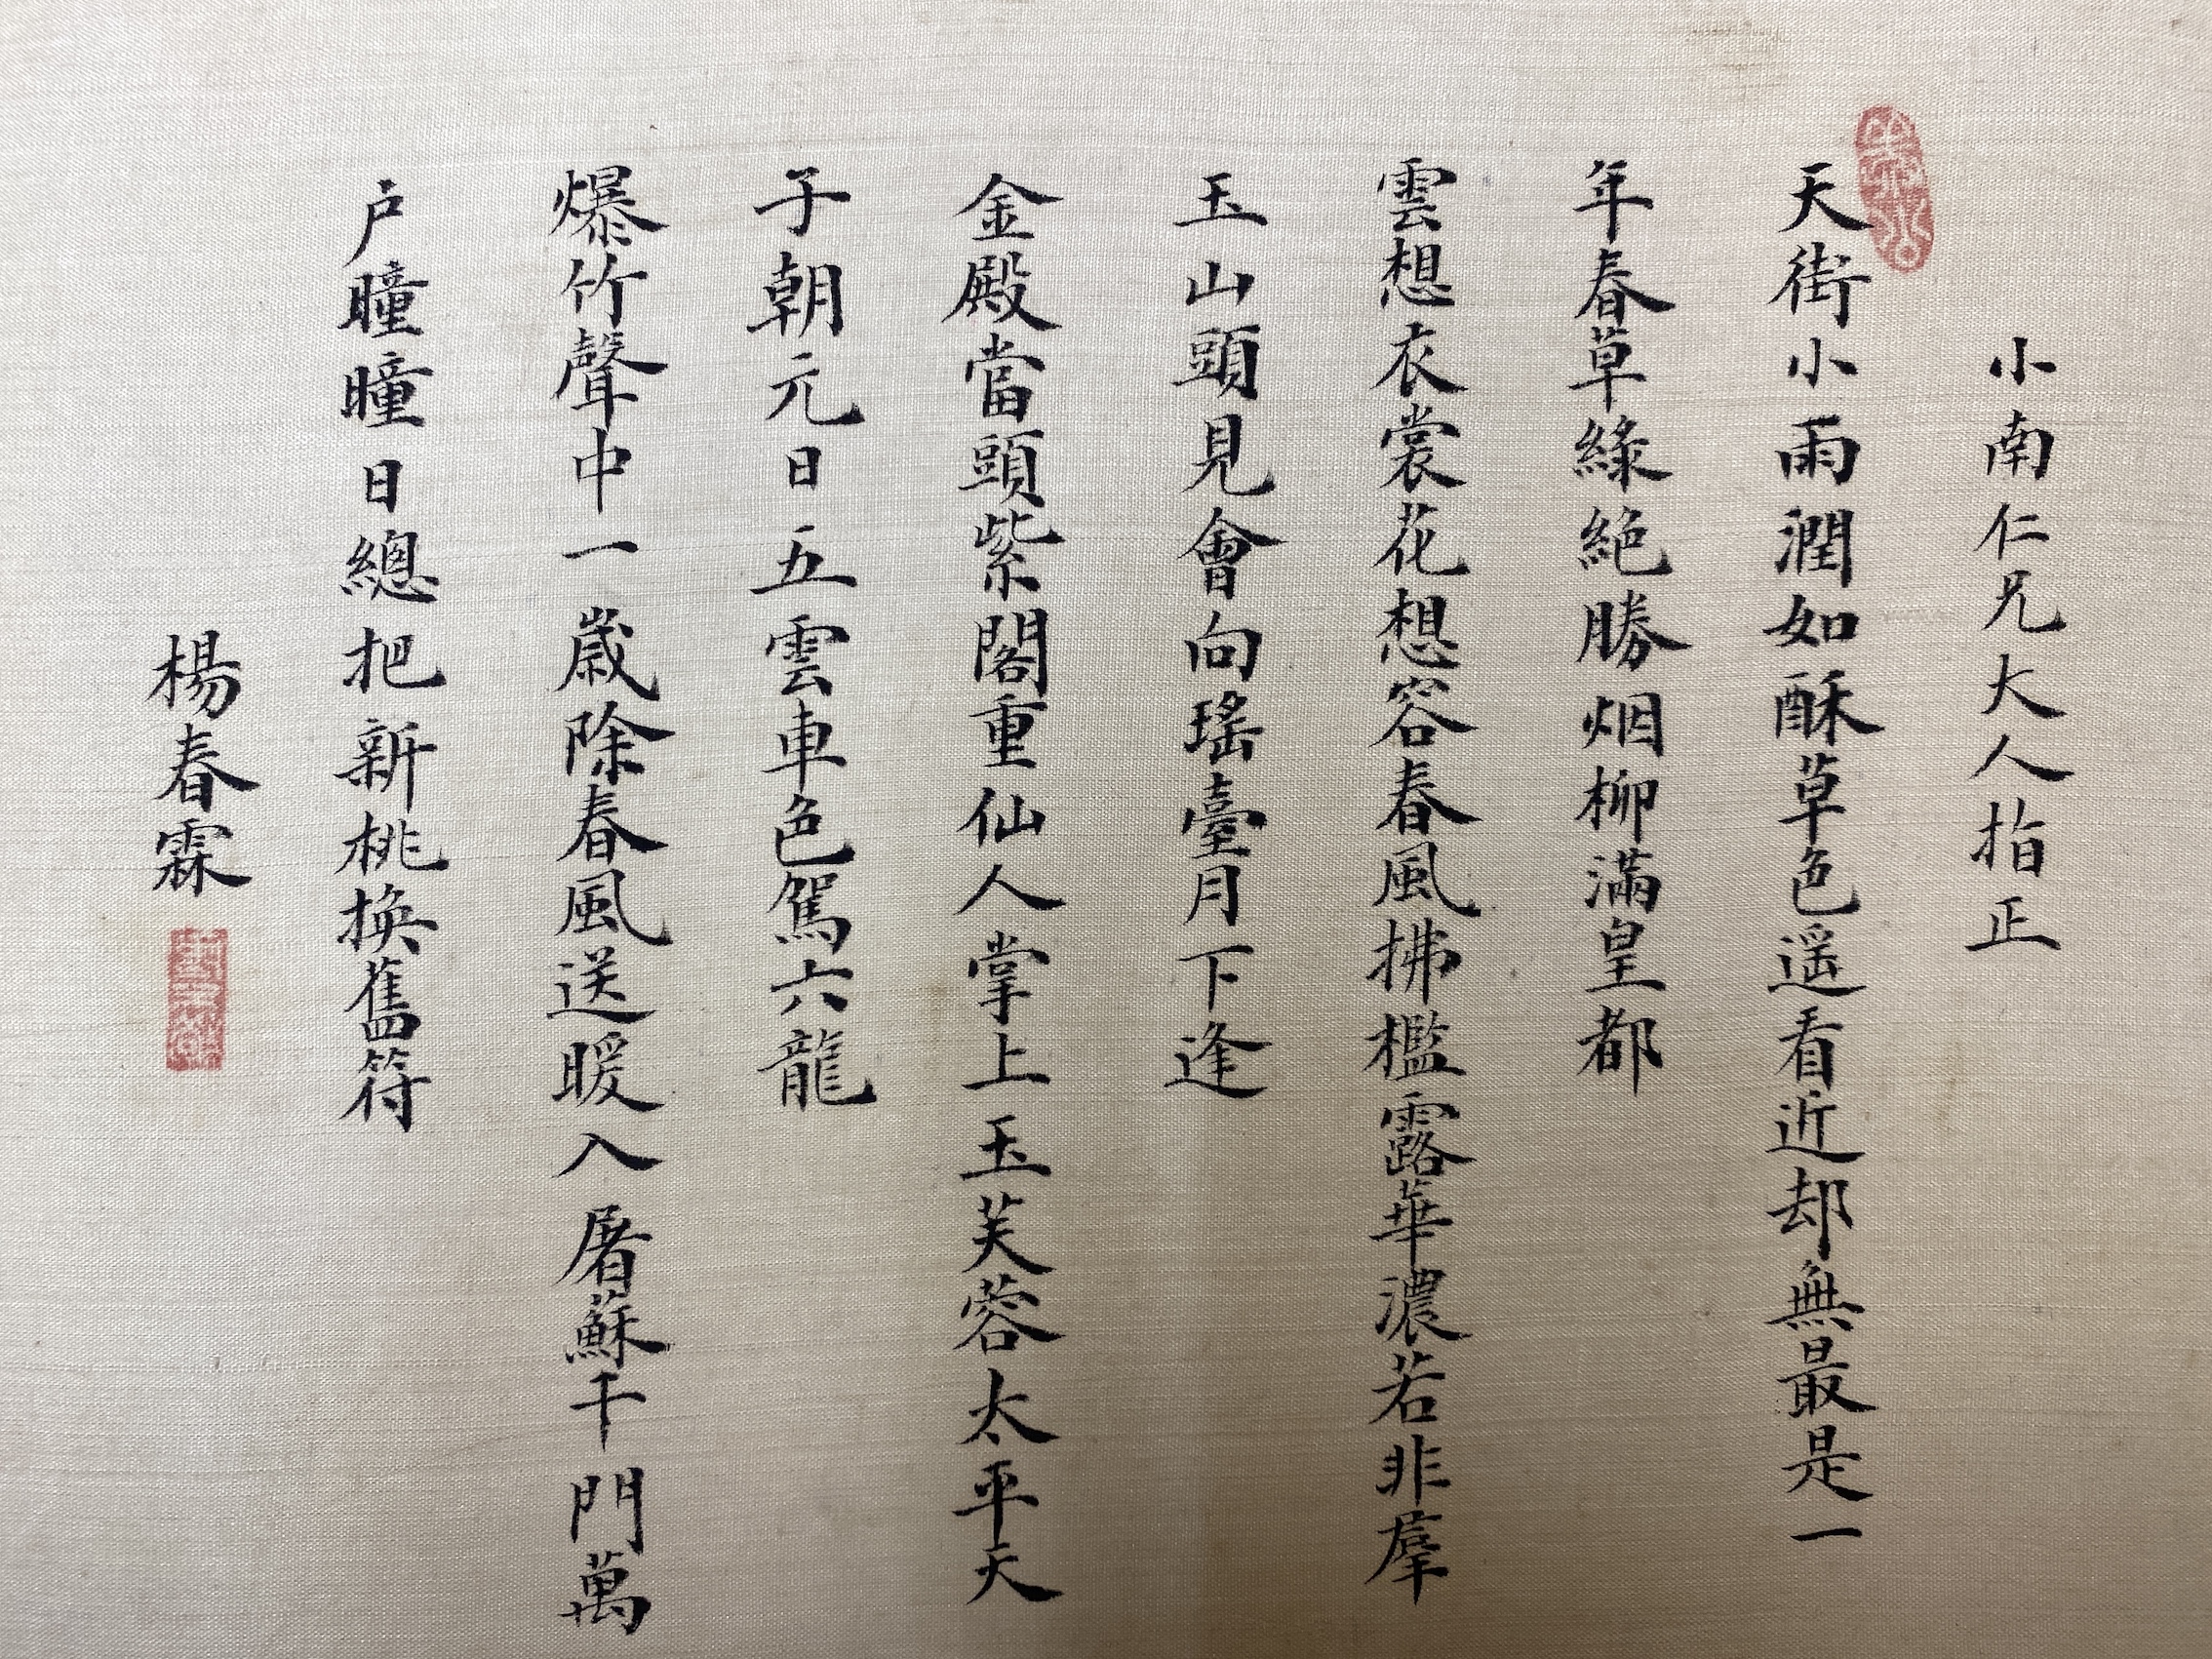 小南仁兄大人指正
天街小雨潤如酥草色遥看近却無最是一
年春草緑絶勝烟柳滿皇都
雲想衣裳花想容春風拂檻露華濃若非羣
玉山頭見會向瑤臺月下逢
金殿當頭紫閣重仙人掌上玉芙蓉太平天
子朝元日五雲車色駕六龍
爆竹聲中一歲除春風送暖入屠蘇千門萬
户曈曈日總把新桃換舊符
楊春霖